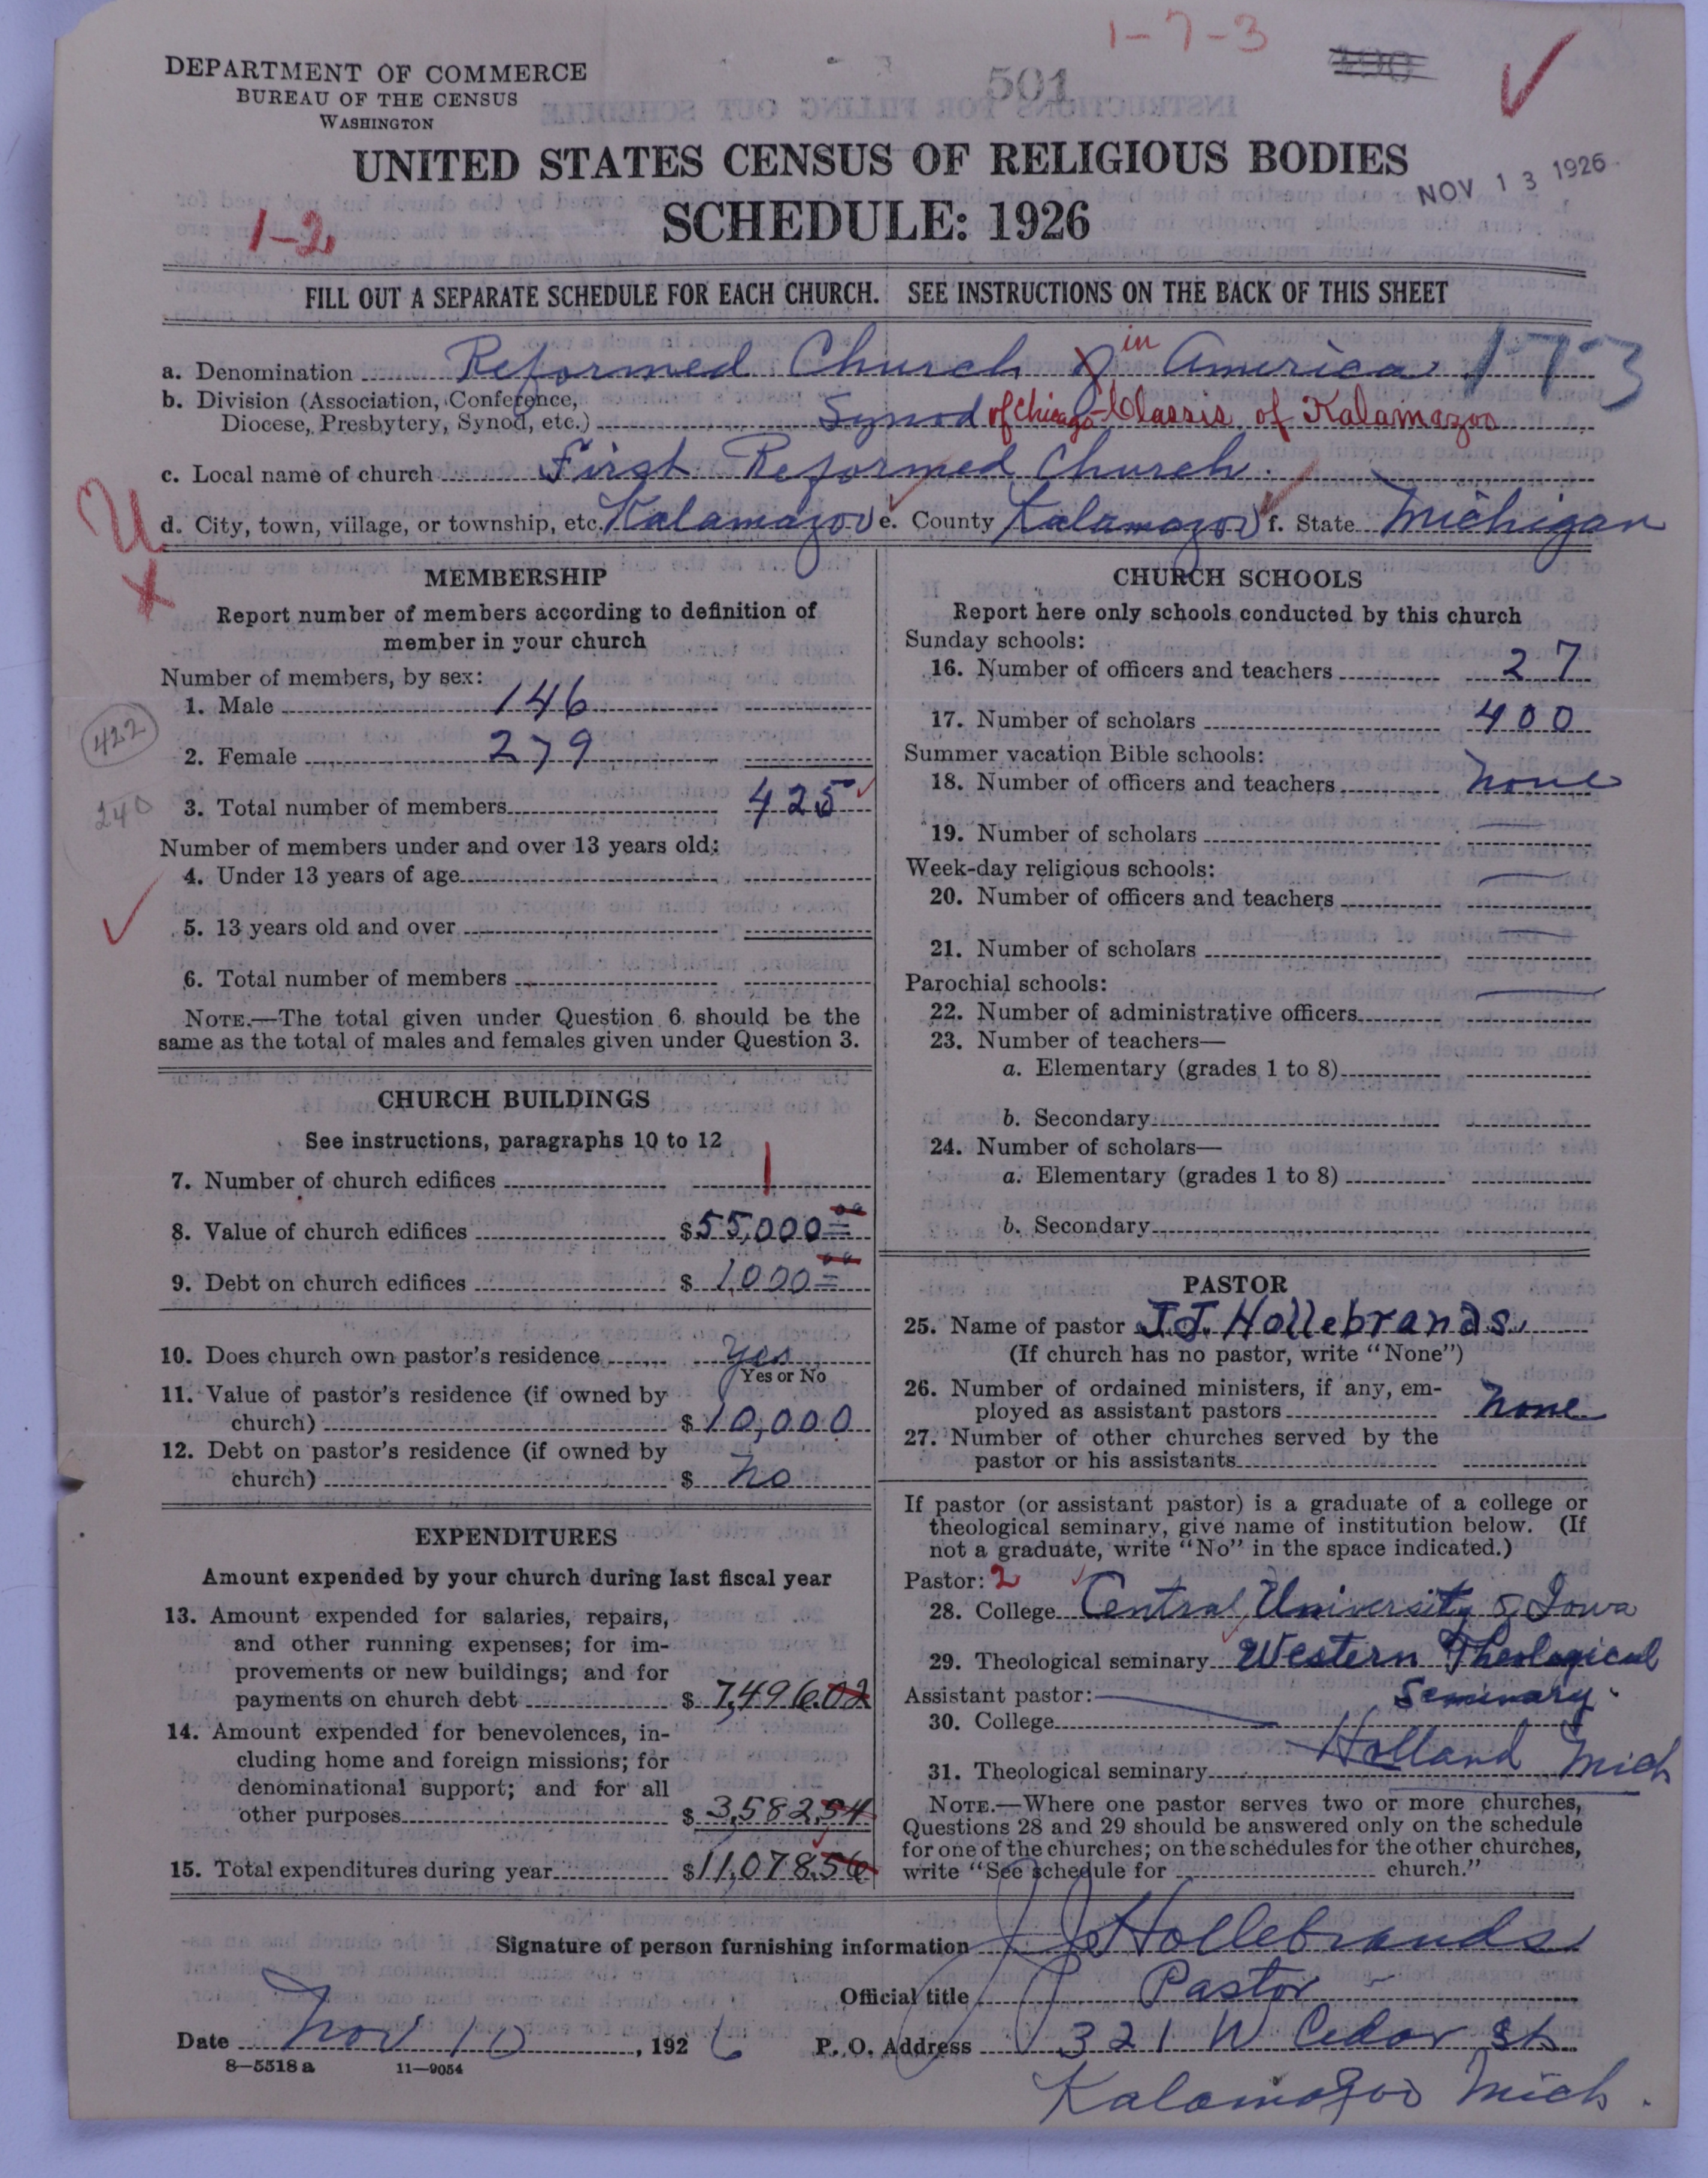 1-7-3
DEPARTMENT OF COMMERCE
BUREAU OF THE CENSUS
WASHINGTON
501
UNITED STATES CENSUS OF RELIGIOUS BODIES
NOV 13 1926
SCHEDULE: 1926
1-2
FILL OUT A SEPARATE SCHEDULE FOR EACH CHURCH. SEE INSTRUCTIONS ON THE BACK OF THIS SHEET
a. Denomination Reformed Church in America 173
b. Division (Association, Conference,
Diocese, Presbytery, Synod, etc.) Synod of Chicago-Classis of Kalamazoo
c. Local name of church First Reformed Church.
d. City, town, village, or township, etc. Kalamazoo e. County Kalamazoo f. State Michigan
U
x
MEMBERSHIP
Report number of members according to definition of
member in your church
Number of members, by sex:
1. Male 146
422
2. Female 279
240
3. Total number of members 425
Number of members under and over 13 years old:
4. Under 13 years of age
5. 13 years old and over
6. Total number of members
NOTE.—The total given under Question 6 should be the
same as the total of males and females given under Question 3.
CHURCH BUILDINGS
See instructions, paragraphs 10 to 12
7. Number of church edifices 1
8. Value of church edifices $55,000 00
9. Debt on church edifices $1,000 00
10. Does church own pastor's residence yes
Yes or No
11. Value of pastor's residence (if owned by
church) $10,000
12. Debt on pastor's residence (if owned by
church) $ No
EXPENDITURES
Amount expended by your church during last fiscal year
13. Amount expended for salaries, repairs,
and other running expenses; for im-
provements or new buildings; and for
payments on church debt $7,496.02
14. Amount expended for benevolences, in-
cluding home and foreign missions; for
denominational support; and for all
other purposes $3,582.54
15. Total expenditures during year $11,078.56
CHURCH SCHOOLS
Report here only schools conducted by this church
Sunday schools:
16. Number of officers and teachers 27
17. Number of scholars 400
Summer vacation Bible schools:
18. Number of officers and teachers none
19. Number of scholars
Week-day religious schools:
20. Number of officers and teachers
21. Number of scholars
Parochial schools:
22. Number of administrative officers
23. Number of teachers—
a. Elementary (grades 1 to 8)
b. Secondary
24. Number of scholars—
a. Elementary (grades 1 to 8)
b. Secondary
PASTOR
25. Name of pastor J.J. Hollebrands
(If church has no pastor, write "None")
26. Number of ordained ministers, if any, em-
ployed as assistant pastors none
27. Number of other churches served by the
pastor or his assistants
If pastor (or assistant pastor) is a graduate of a college or
theological seminary, give name of institution below. (If
not a graduate, write "No" in the space indicated.)
Pastor: 2
28. College Central University of Iowa
29. Theological seminary Western Theological
Assistant pastor: Seminary.
30. College
Holland Mich
31. Theological seminary
NOTE.—Where one pastor serves two or more churches,
Questions 28 and 29 should be answered only on the schedule
for one of the churches; on the schedules for the other churches,
write "See schedule for church."
Signature of person furnishing information J J Hollebrands
Official title Pastor
Date Nov 10, 1926 P. O. Address 321 W Cedar St.
8—5518 a 11—9054
Kalamazoo Mich.